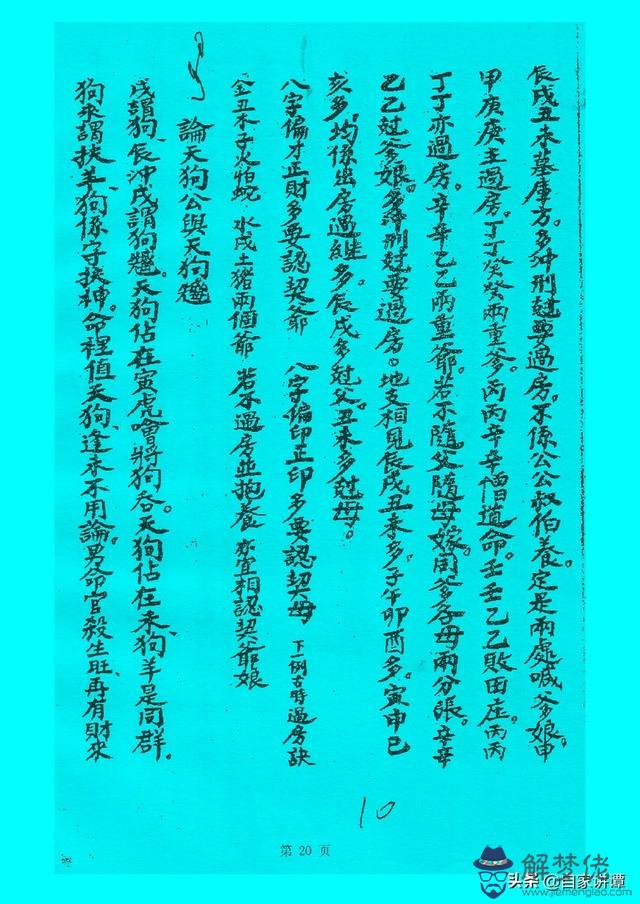 辰戌丑未墓庫方。多冲刑尅要過房。不係公公叔伯養。定是兩處喊爹娘。甲
甲庚庚主過房。丁丁癸癸兩重爹。丙丙辛辛僧道命。壬壬乙乙敗田庄。丙丙
丁丁亦過房。辛辛乙乙兩重爺。若不隨父隨母嫁。用爹居母兩分張。辛辛
乙乙尅爹娘。多冲刑尅要過房。地支相見辰戌丑未多。子午卯酉多。寅申巳
亥多。均係出房過繼多。辰戌多尅父。丑未多尅母。
八字偏才正財多要認契爺 八字偏印正印多要認契母 下一例古時過房訣
金丑木子火怕蛇 水戌土猪兩個爺 若不過房並抱養 亦宜相認契爺娘
論天狗公與天狗
戌謂狗、辰冲戌謂狗。天狗佔在寅虎會將狗吞。天狗佔在未、狗羊是同群。
狗未謂扶羊、狗係守換神。命裡值天狗、逢未不用論。男命官殺生旺、再有財來
10
第 20 页
解梦佬
www.jiemenglao.com
头条 @自家讲谭